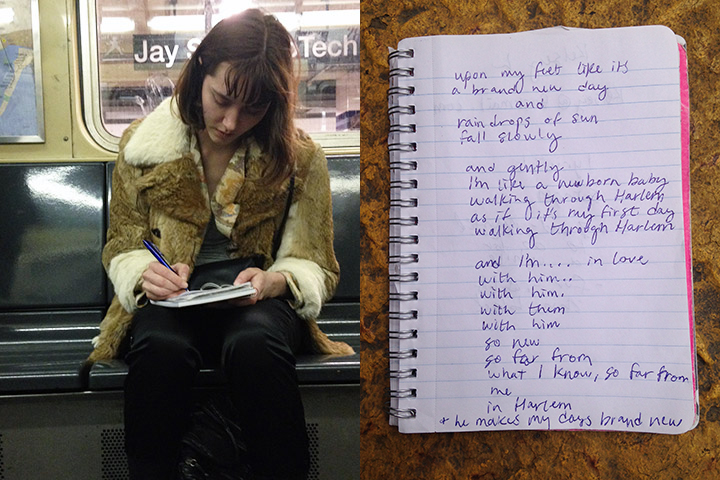 Jay S Tech
upon my feet like its
a brand new day
and
raindrops of sun
fall slowly
and gently
I'm like a newborn baby
walking through Harlem
as if it's my first day
walking through Harlem
and I'm.... in love
with him..
with him.
with them
with him
so new
so far from
what I know, so far from
me
in Harlem
* he makes my days brand new